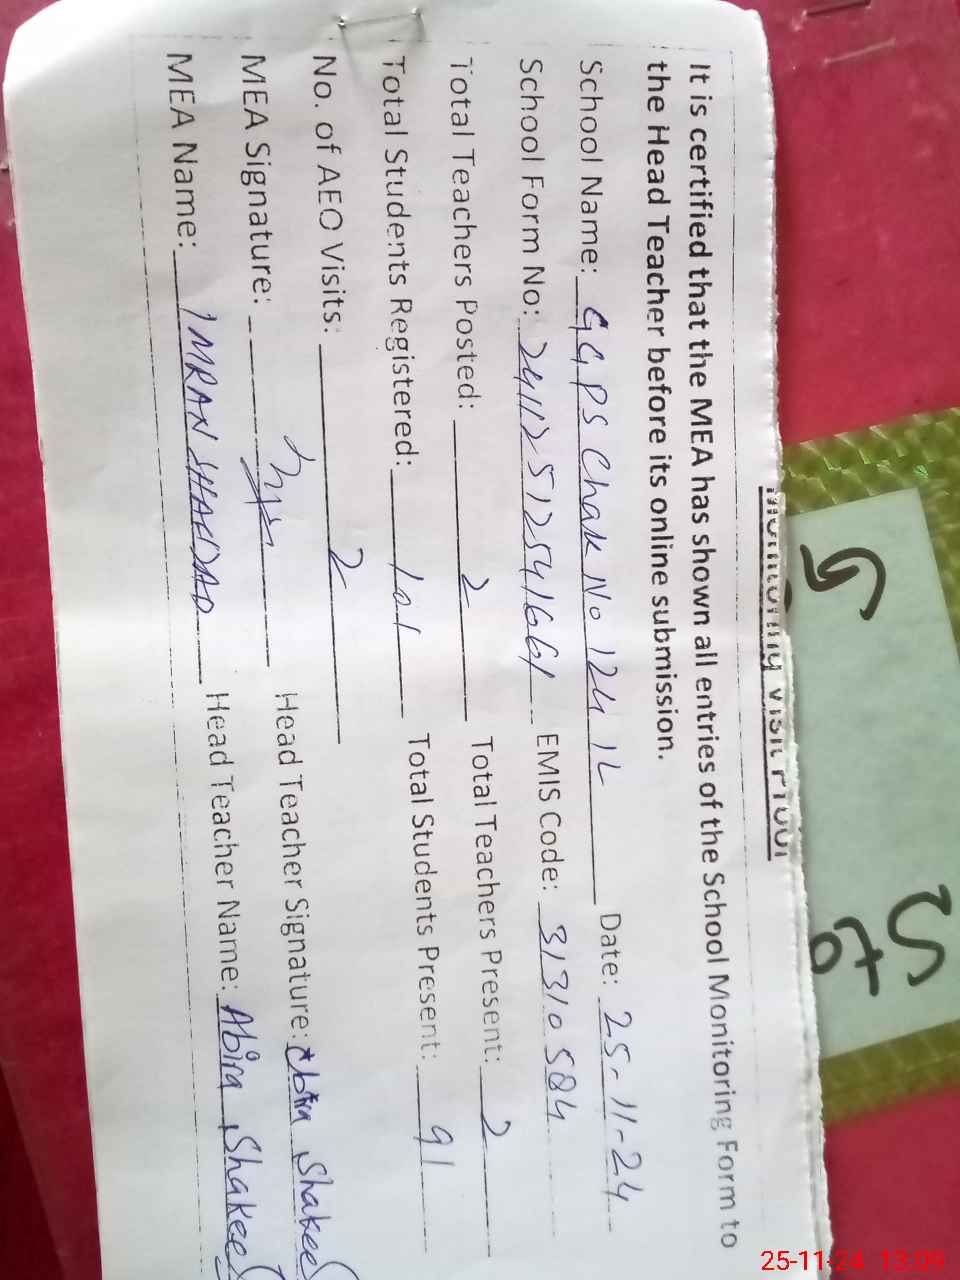 Monitoring Visit Proof
It is certified that the MEA has shown all entries of the School Monitoring Form to
the Head Teacher before its online submission.
School Name: GGPS Chak No 124 1L Date: 25-11-24
School Form No: 241125125441661 EMIS Code: 31310584
Total Teachers Posted: 2 Total Teachers Present: 2
Total Students Registered: 101 Total Students Present: 91
No. of AEO Visits: 2
MEA Signature: Head Teacher Signature: Abira Shakeel
MEA Name: IMRAN SHAHZAD Head Teacher Name: Abira Shakeel
25-11-24 13:09